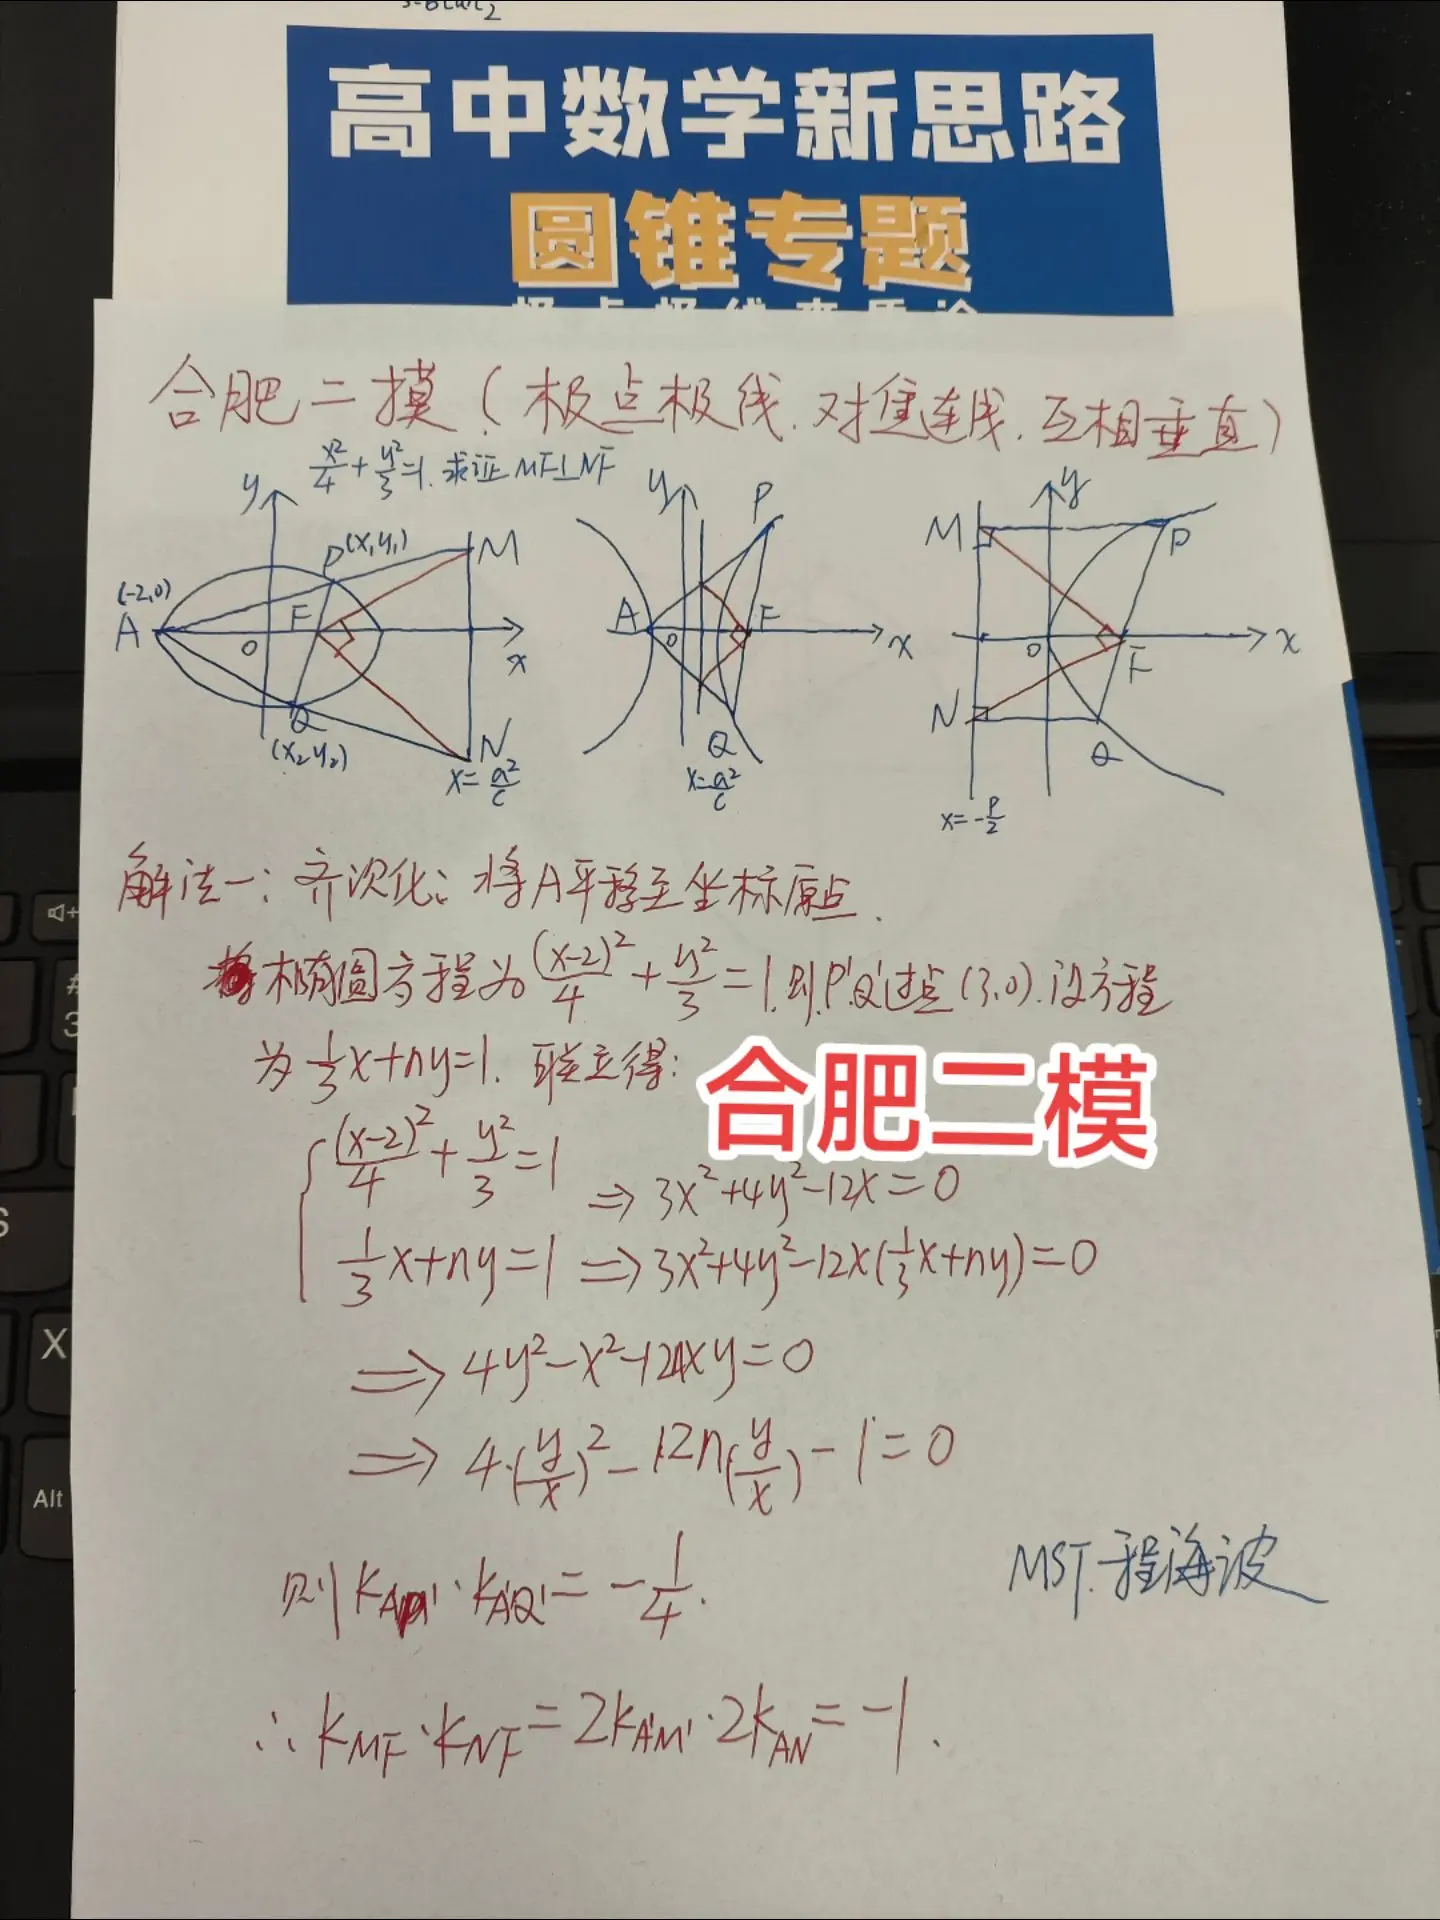 高中数学新思路
圆锥专题
合肥二摸(极点极线.对焦连线.互相垂直)
x²/4 + y²/3 = 1. 求证 MF⊥NF
y
P (x₁y₁)
M
(-2,0)
A
F
O
x
Q
(x₂y₂)
N
x = a²/c
y
P
A
O
F
x
Q
x = a²/c
y
M
P
O
F
x
N
Q
x = -P/2
解法一: 齐次化: 将A平移至坐标原点.
椭圆方程为 (x-2)²/4 + y²/3 = 1. 则. P'Q'过点(3,0). 设方程
为 1/3 x + ny = 1. 联立得:
合肥二模
(x-2)²/4 + y²/3 = 1 ⇒ 3x² + 4y² - 12x = 0
1/3 x + ny = 1 ⇒ 3x² + 4y² - 12x(1/3 x + ny) = 0
⇒ 4y² - x² - 12nxy = 0
⇒ 4·(y/x)² - 12n(y/x) - 1 = 0
则 k · kA'Q' = -1/4.
MST.程海波
∴ kMF · kNF = 2kA'M' · 2kAN = -1.